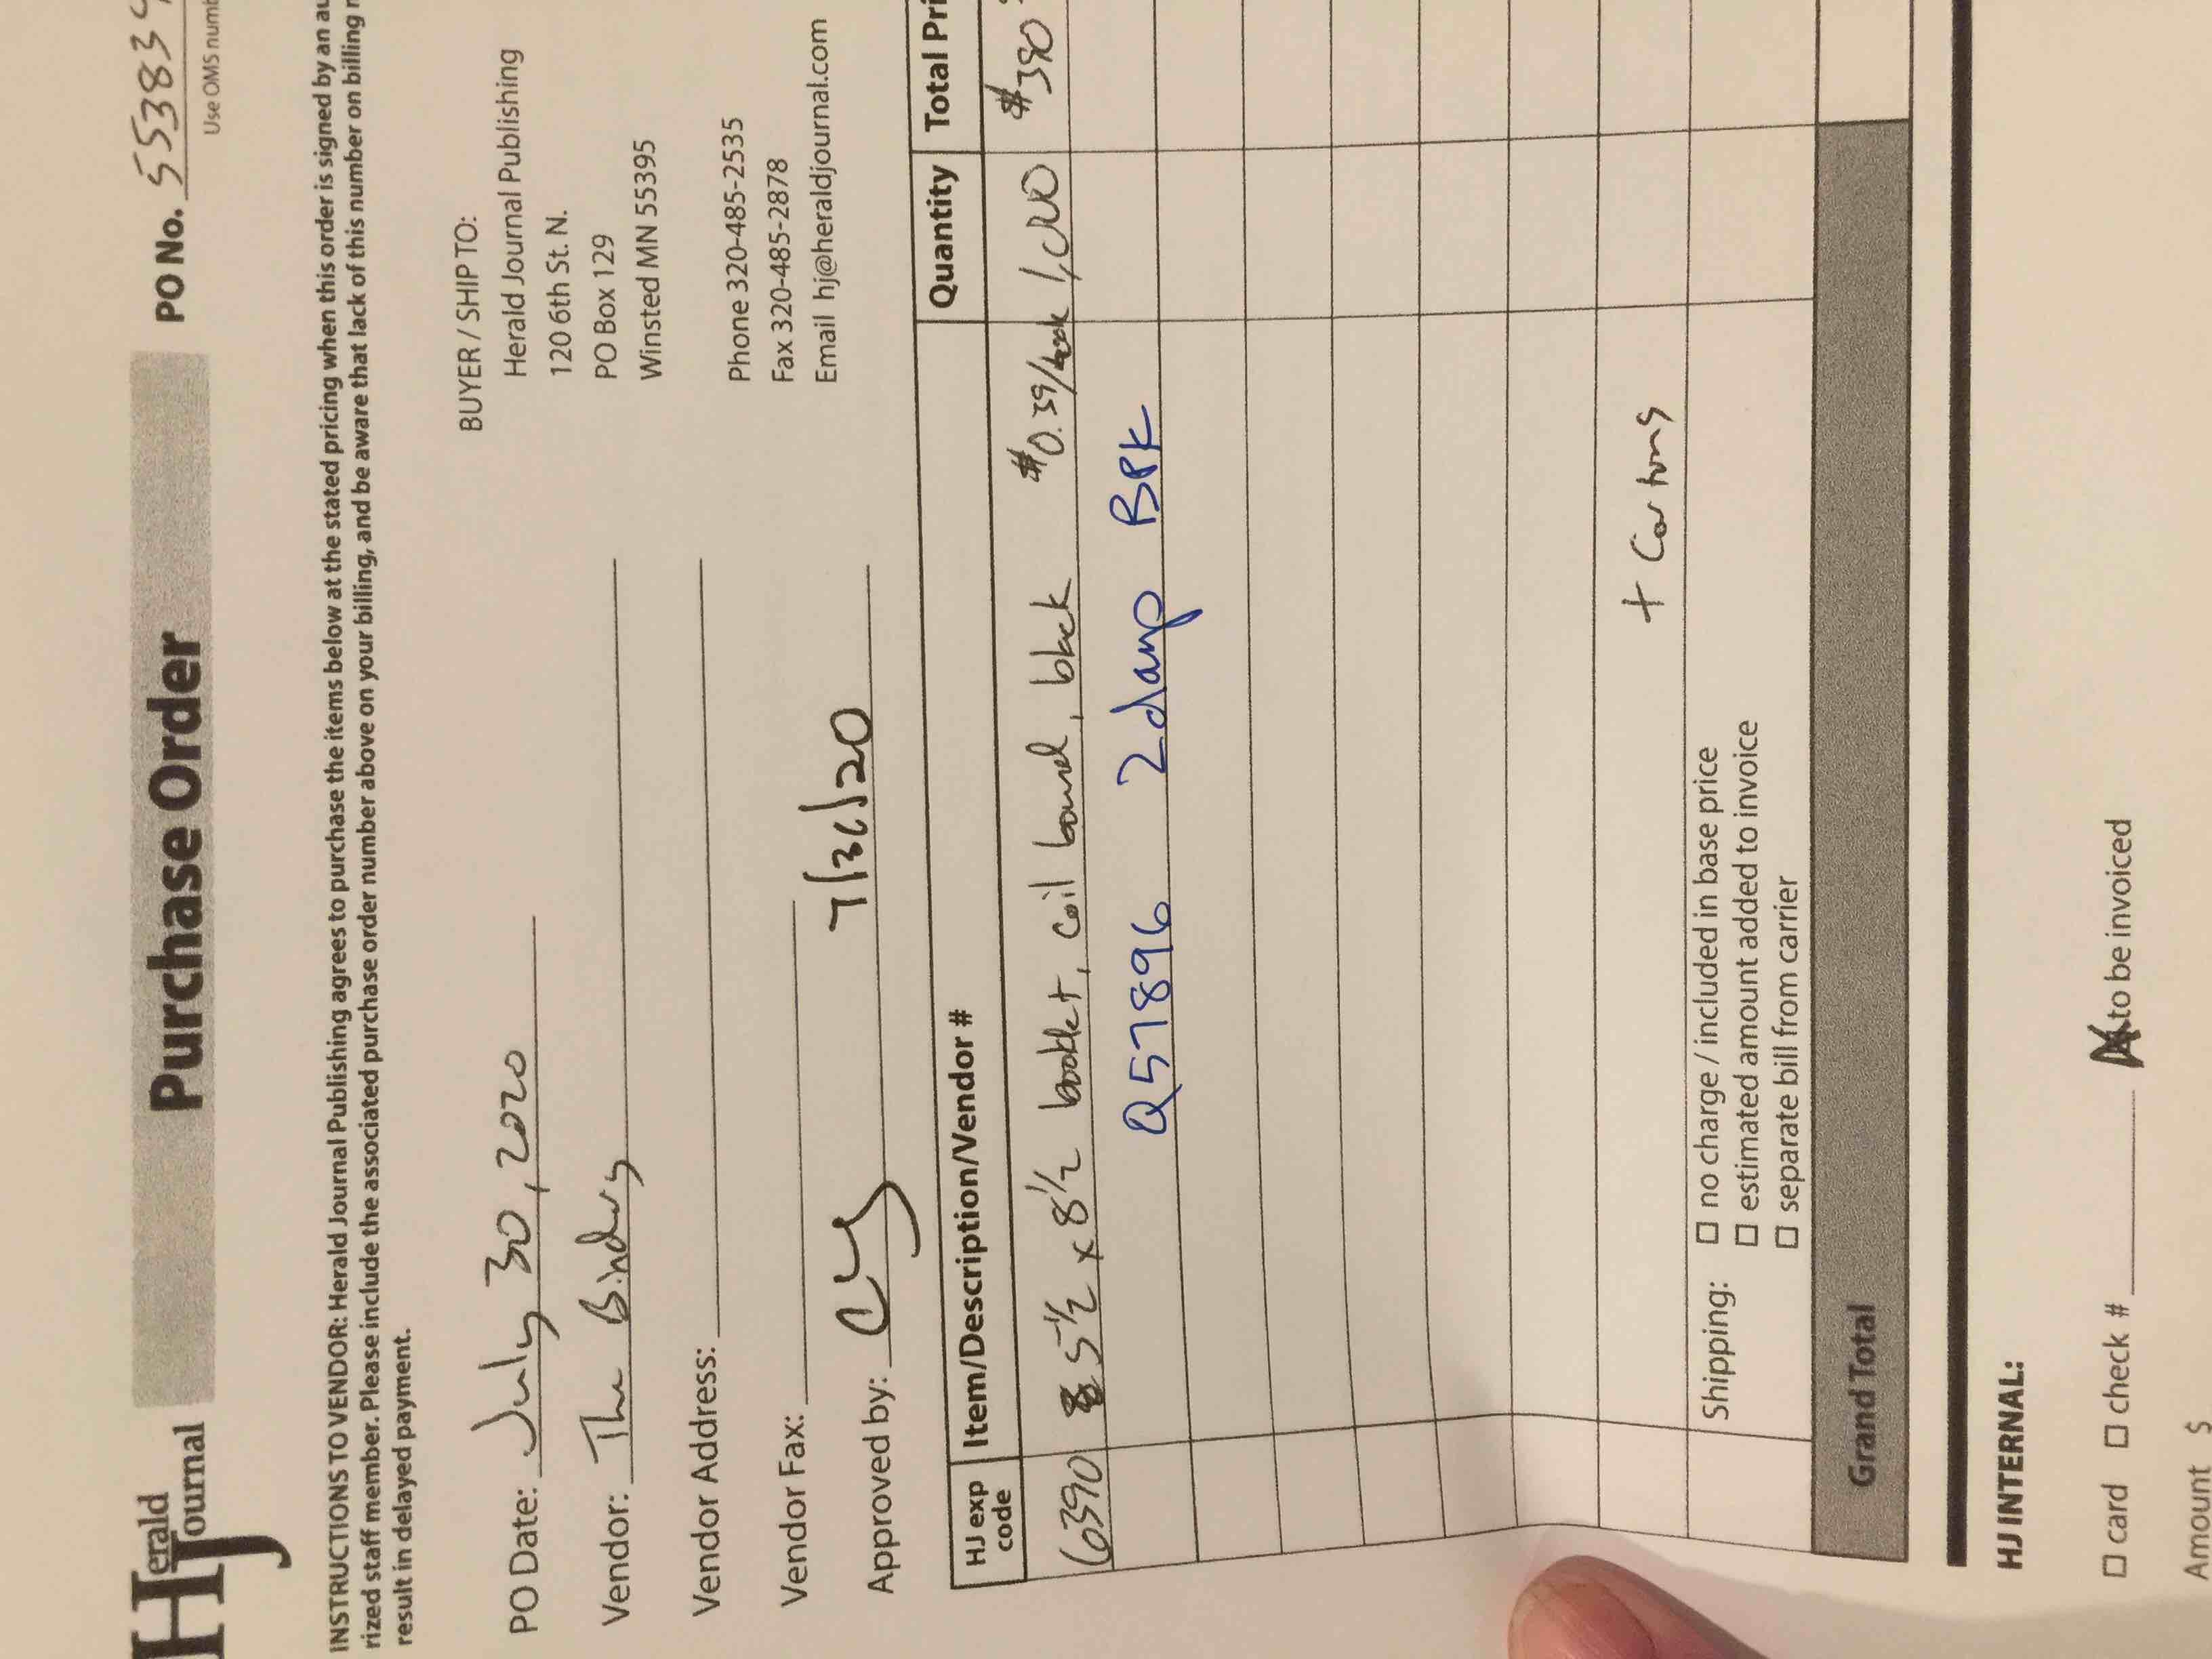 Herald Journal Purchase Order PO No. 55383
Use OMS numb
INSTRUCTIONS TO VENDOR: Herald Journal Publishing agrees to purchase the items below at the stated pricing when this order is signed by an au
rized staff member. Pr. Please include the associated purchase order number above on your billing, and be aware that lack of this number on billing
result in delayed payment.
PO Date: July 30, 2020
Vendor: The Bindery
Vendor Address:
Vendor Fax:
Approved by: 7/30/20
BUYER / SHIP TO:
Herald Journal Publishing
120 6th St. N.
PO Box 129
Winsted MN 55395
Phone 320-485-2535
Fax 320-485-2878
Email hj@heraldjournal.com
HJ exp code Item/Description/Vendor # Quantity Total Pri
6390 5 1/2 x 8 1/2 booklet, coil bound, black $0.39/book 1,000 $390
Q57896 2damp BPK
+ Cartons
Shipping: □ no charge / included in base price
□ estimated amount added to invoice
□ separate bill from carrier
Grand Total
HJ INTERNAL:
□ card □ check # to be invoiced
Amount $